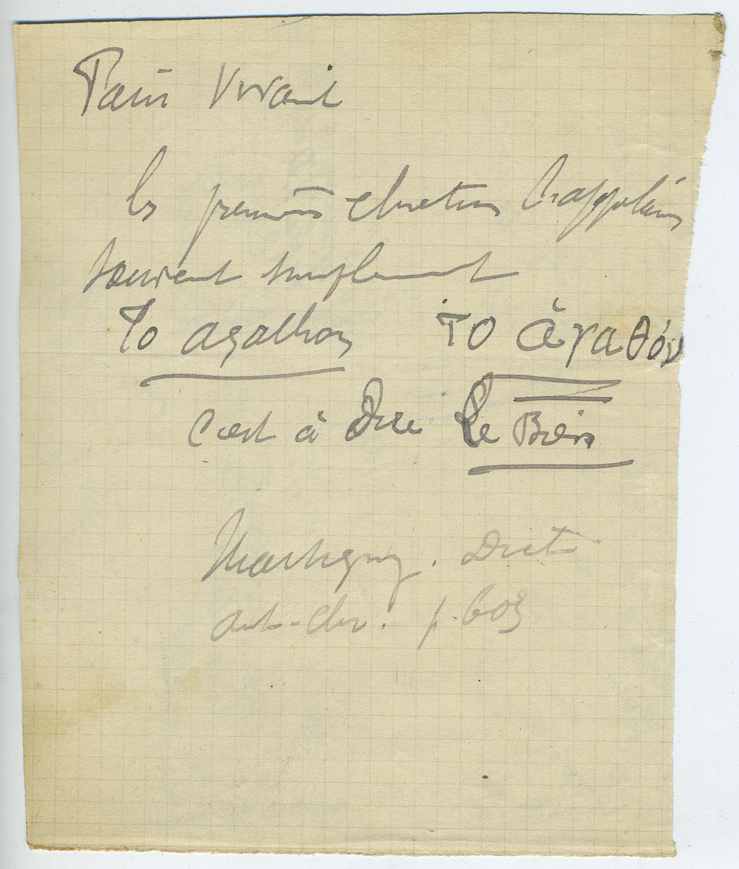 Pain Vivant
les premiers chretiens l'appelaient
souvent simplement
To agathon τὸ ἀγαθόν
c'est à Dire Le Bien
Martigny. Dict.
ant. chr. p. 603